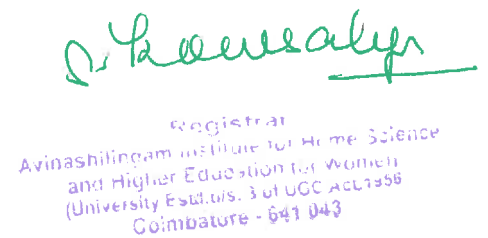 S. Kowsalya
Registrar
Avinashilingam Institute for Home Science
and Higher Education for Women
(University Estd.u/s. 3 of UGC Act 1956
Coimbatore - 641 043